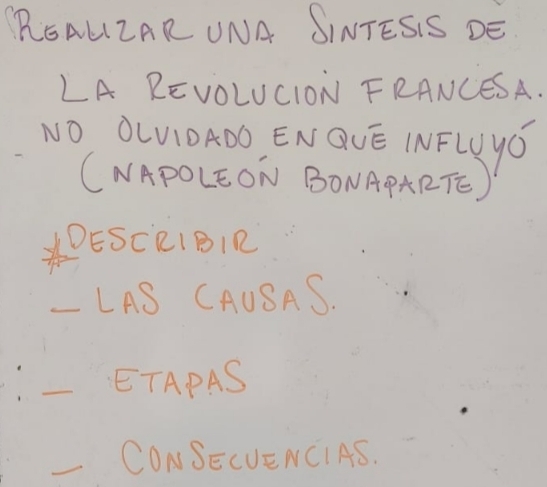 REALIZAR UNA SINTESIS DE
LA REVOLUCIÓN FRANCESA.
- NO OLVIDADO EN QUÉ INFLUYÓ
(NAPOLEÓN BONAPARTE)
*DESCRIBIR
- LAS CAUSAS.
- ETAPAS
- CONSECUENCIAS.